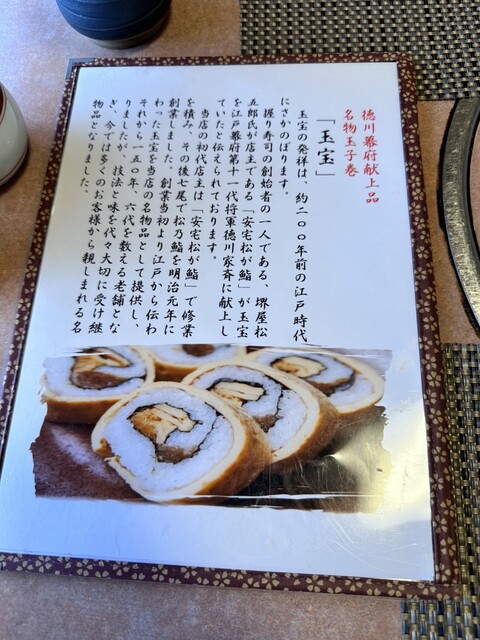 徳川幕府献上品
名物玉子巻
「玉宝」
玉宝の発祥は、約二〇〇年前の江戸時代
にさかのぼります。
握り寿司の創始者の一人である、堺屋松
五郎氏が店主である「安宅松が鮨」が玉宝
を江戸幕府第十一代将軍徳川家斉に献上し
ていたと伝えられております。
当店の初代店主は「安宅松が鮨」で修業
を積み、その後七尾で松乃鮨を明治元年に
創業しました。創業当初より江戸から伝わ
わった玉宝を当店の名物品として提供し、
それから一五〇年、六代を数える老舗とな
りましたが、技法と味を代々大切に受け継
ぎ、今では多くのお客様から親しまれる名
物品となりました。